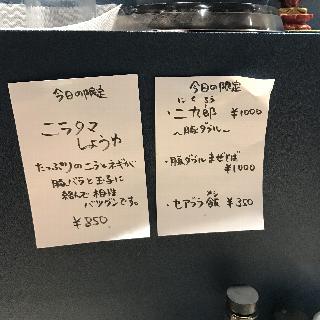 今日の限定
ニラタマ
しょうゆ
たっぷりのニラとネギが
豚バラと玉子に
絡んで相性
バツグンです。
¥850
今日の限定
にくろう
・二九郎 ¥1000
〜豚ダブル〜
・豚ダブルまぜそば
¥1000
メシ
・セアブラ飯 ¥350